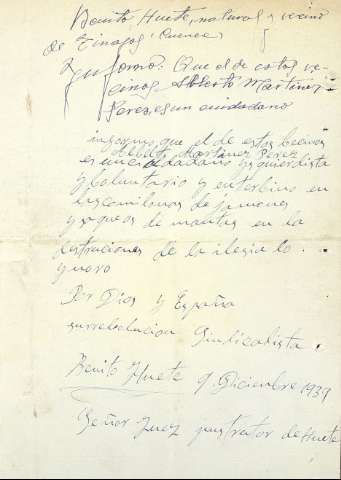 Benito Huete, natural y vecino
de Tinajas (Cuenca)
Ynforma: Que el de estos ve-
cinos Alberto Martinez
Perez, es un ciudadano
ingormo que el de estos becinos
Alberto Martinez Perez
es un ciudadano izquierdista
y boluntario y enterbino en
las comilonas de jamones
y saqueos de mantas en la
destruciones de la ilesia lo
ynoro
Por Dios y España
surrebolucion Sindicalista.
Benito Huete 9 Diciembre 1939
Señor Juez de Huete